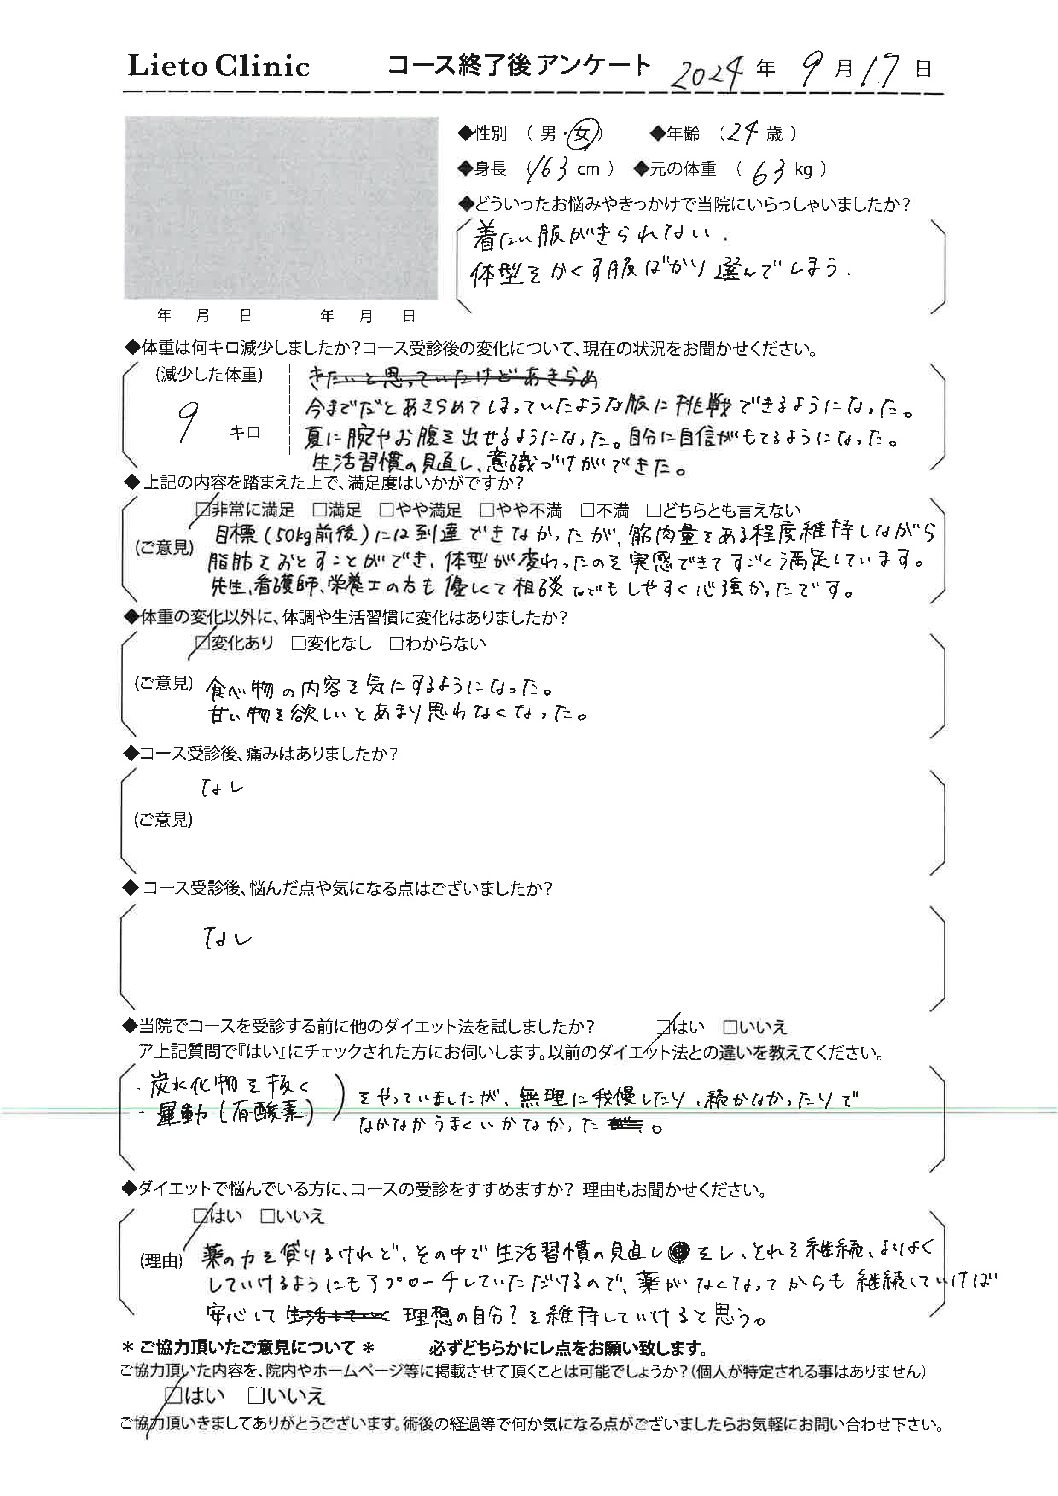 Lieto Clinic コース終了後アンケート 2024年 9月17日
◆性別 (男・女) ◆年齢 (24歳)
◆身長 (163cm) ◆元の体重 (63kg)
◆どういったお悩みやきっかけで当院にいらっしゃいましたか?
着たい服がきられない.
体型をかくす服ばかり選んでしまう.
年 月 日 年 月 日
◆体重は何キロ減少しましたか?コース受診後の変化について、現在の状況をお聞かせください。
(減少した体重)
9キロ
きたいと思っていたけどあきらめ
今までだとあきらめてしまっていたような服に挑戦できるようになった。
夏に腕やお腹を出せるようになった。自分に自信がもてるようになった。
生活習慣の見直し、意識づけができた。
◆上記の内容を踏まえた上で、満足度はいかがですか?
☑非常に満足 □満足 □やや満足 □やや不満 □不満 □どちらとも言えない
(ご意見)
目標(50kg前後)には到達できなかったが、筋肉量をある程度維持しながら
脂肪をおとすことができ、体型が変わったのを実感できてすごく満足しています。
先生、看護師、栄養士の方も優しくて相談などもしやすく心強かったです。
◆体重の変化以外に、体調や生活習慣に変化はありましたか?
☑変化あり □変化なし □わからない
(ご意見)
食べ物の内容を気にするようになった。
甘い物を欲しいとあまり思わなくなった。
◆コース受診後、痛みはありましたか?
なし
(ご意見)
◆コース受診後、悩んだ点や気になる点はございましたか?
なし
◆当院でコースを受診する前に他のダイエット法を試しましたか? ☑はい □いいえ
ア上記質問で『はい』にチェックされた方にお伺いします。以前のダイエット法との違いを教えてください。
・炭水化物を抜く
・運動(有酸素)
をやっていましたが、無理に我慢したり、続かなかったりで
なかなかうまくいかなかった。
◆ダイエットで悩んでいる方に、コースの受診をすすめますか? 理由もお聞かせください。
☑はい □いいえ
(理由)
薬の力を借りるけれど、その中で生活習慣の見直しをし、それを継続、よりよく
していけるようにもアプローチしていただけるので、薬がなくなってからも継続していけば
安心して 理想の自分?を維持していけると思う。
*ご協力頂いたご意見について* 必ずどちらかにレ点をお願い致します。
ご協力頂いた内容を、院内やホームページ等に掲載させて頂くことは可能でしょうか?(個人が特定される事はありません)
☑はい □いいえ
ご協力頂いきましてありがとうございます。術後の経過等で何か気になる点がございましたらお気軽にお問い合わせ下さい。